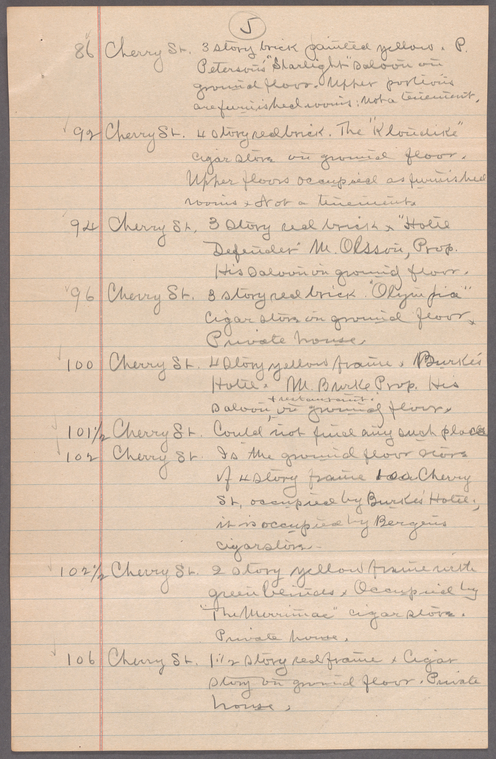 5
86 Cherry St. 3 story brick painted yellow. P.
Peterson's "Starlight" Saloon on
ground floor. Upper portions
are furnished rooms. Not a tenement.
92 Cherry St. 4 story red brick. The "Klondike"
cigar store on ground floor.
Upper floors occupied as furnished
rooms. Not a tenement.
94 Cherry St. 3 story red brick. "Hotel
Defender" M. Olsson, Prop.
His saloon on ground floor.
96 Cherry St. 3 story red brick "Olympia"
cigar store on ground floor.
Private house.
100 Cherry St. 4 story yellow frame. Burke's
Hotel. M. Burke Prop. His
+ restaurant.
saloon, on ground floor.
101 1/2 Cherry St. Could not find any such place
102 Cherry St. Is the ground floor store
of 4 story frame 100 Cherry
St, occupied by Burke's Hotel,
it is occupied by Bergen's
cigar store.
102 1/2 Cherry St. 2 story yellow frame with
green blinds. Occupied by
"The Merrimac" cigar store.
Private house.
106 Cherry St. 1 1/2 story red frame. Cigar
story on ground floor. Private
house.